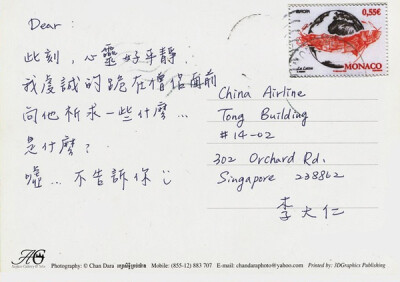 Dear:
此刻，心靈好平靜
我虔誠的跪在僧侶面前
向他祈求一些什麼...
是什麼？
噓... 不告訴你
China Airline
Tong Building
#14-02
302 Orchard Rd.
Singapore 238862
李大仁
EUROPA
0,55€
MONACO
Photography: © Chan Dara
Mobile: (855-12) 883 707
E-mail: chandaraphoto@yahoo.com
Printed by: 3DGraphics Publishing